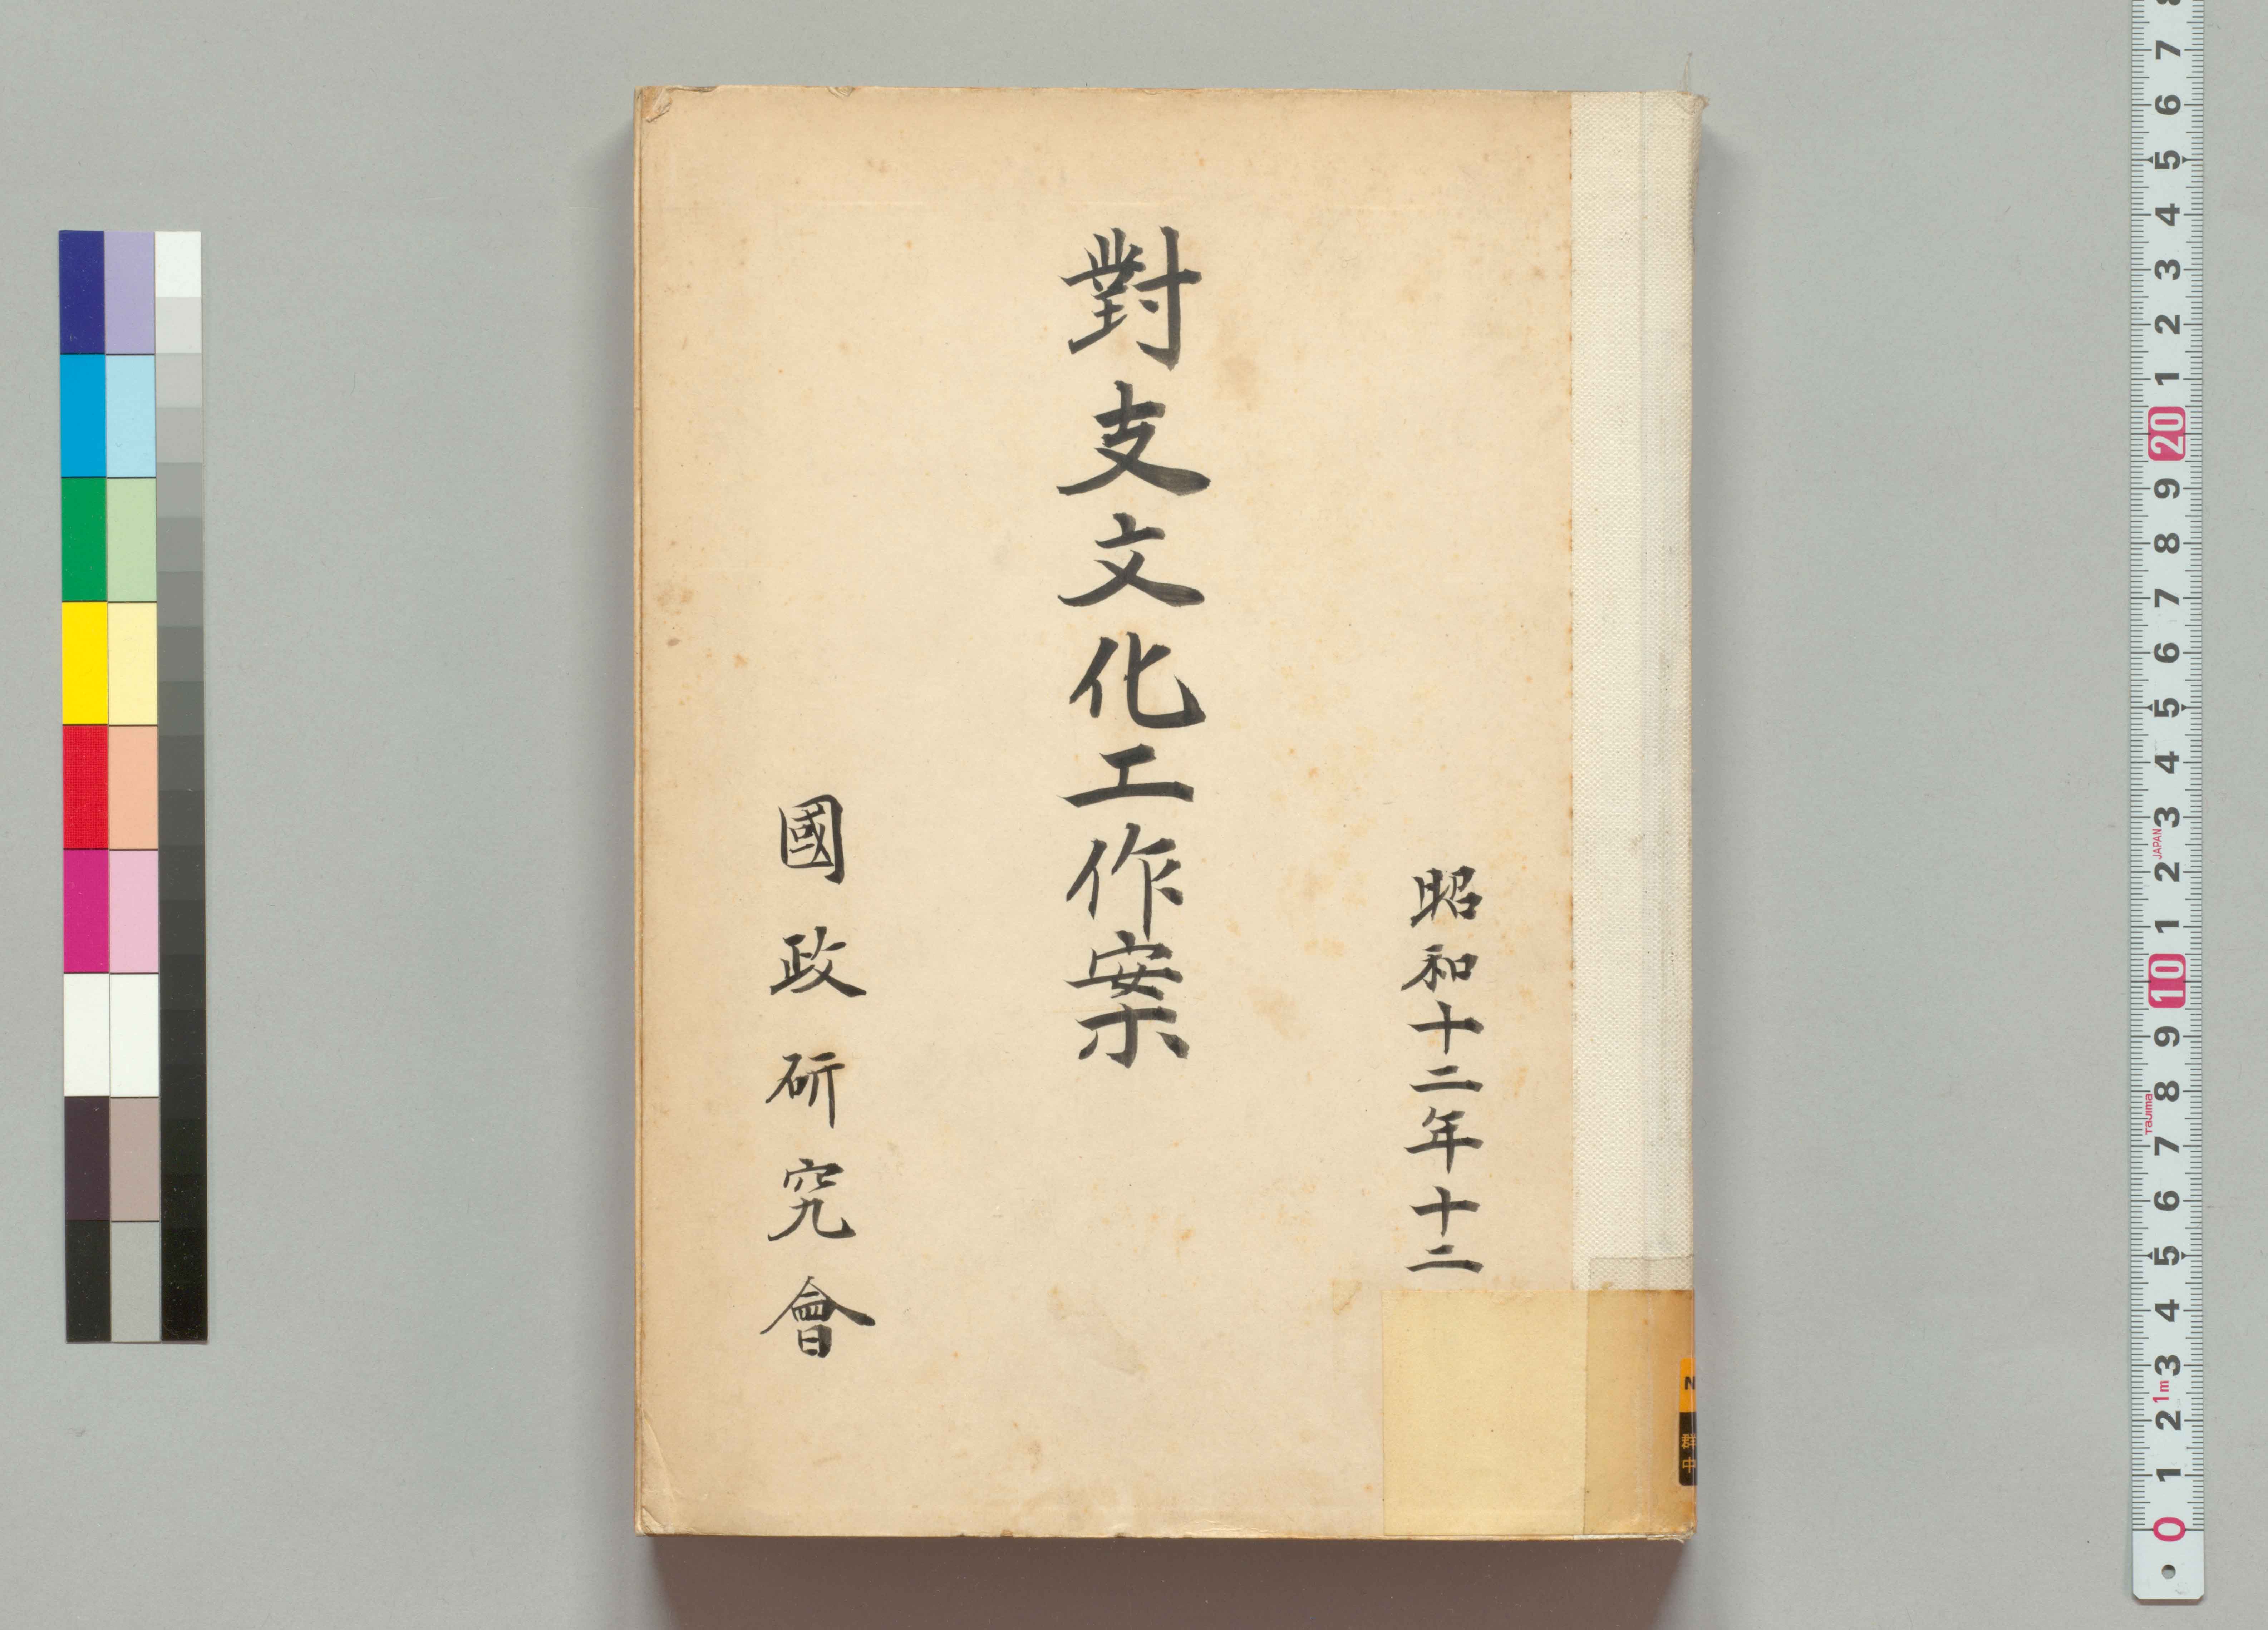 昭和十二年十二
對支文化工作案
國政研究會
N
群
中
8
7
6
5
4
3
2
1
20
9
8
7
6
5
4
3
JAPAN
2
1
10
9
8
TaJIma
7
6
5
4
3
1m
2
1
0